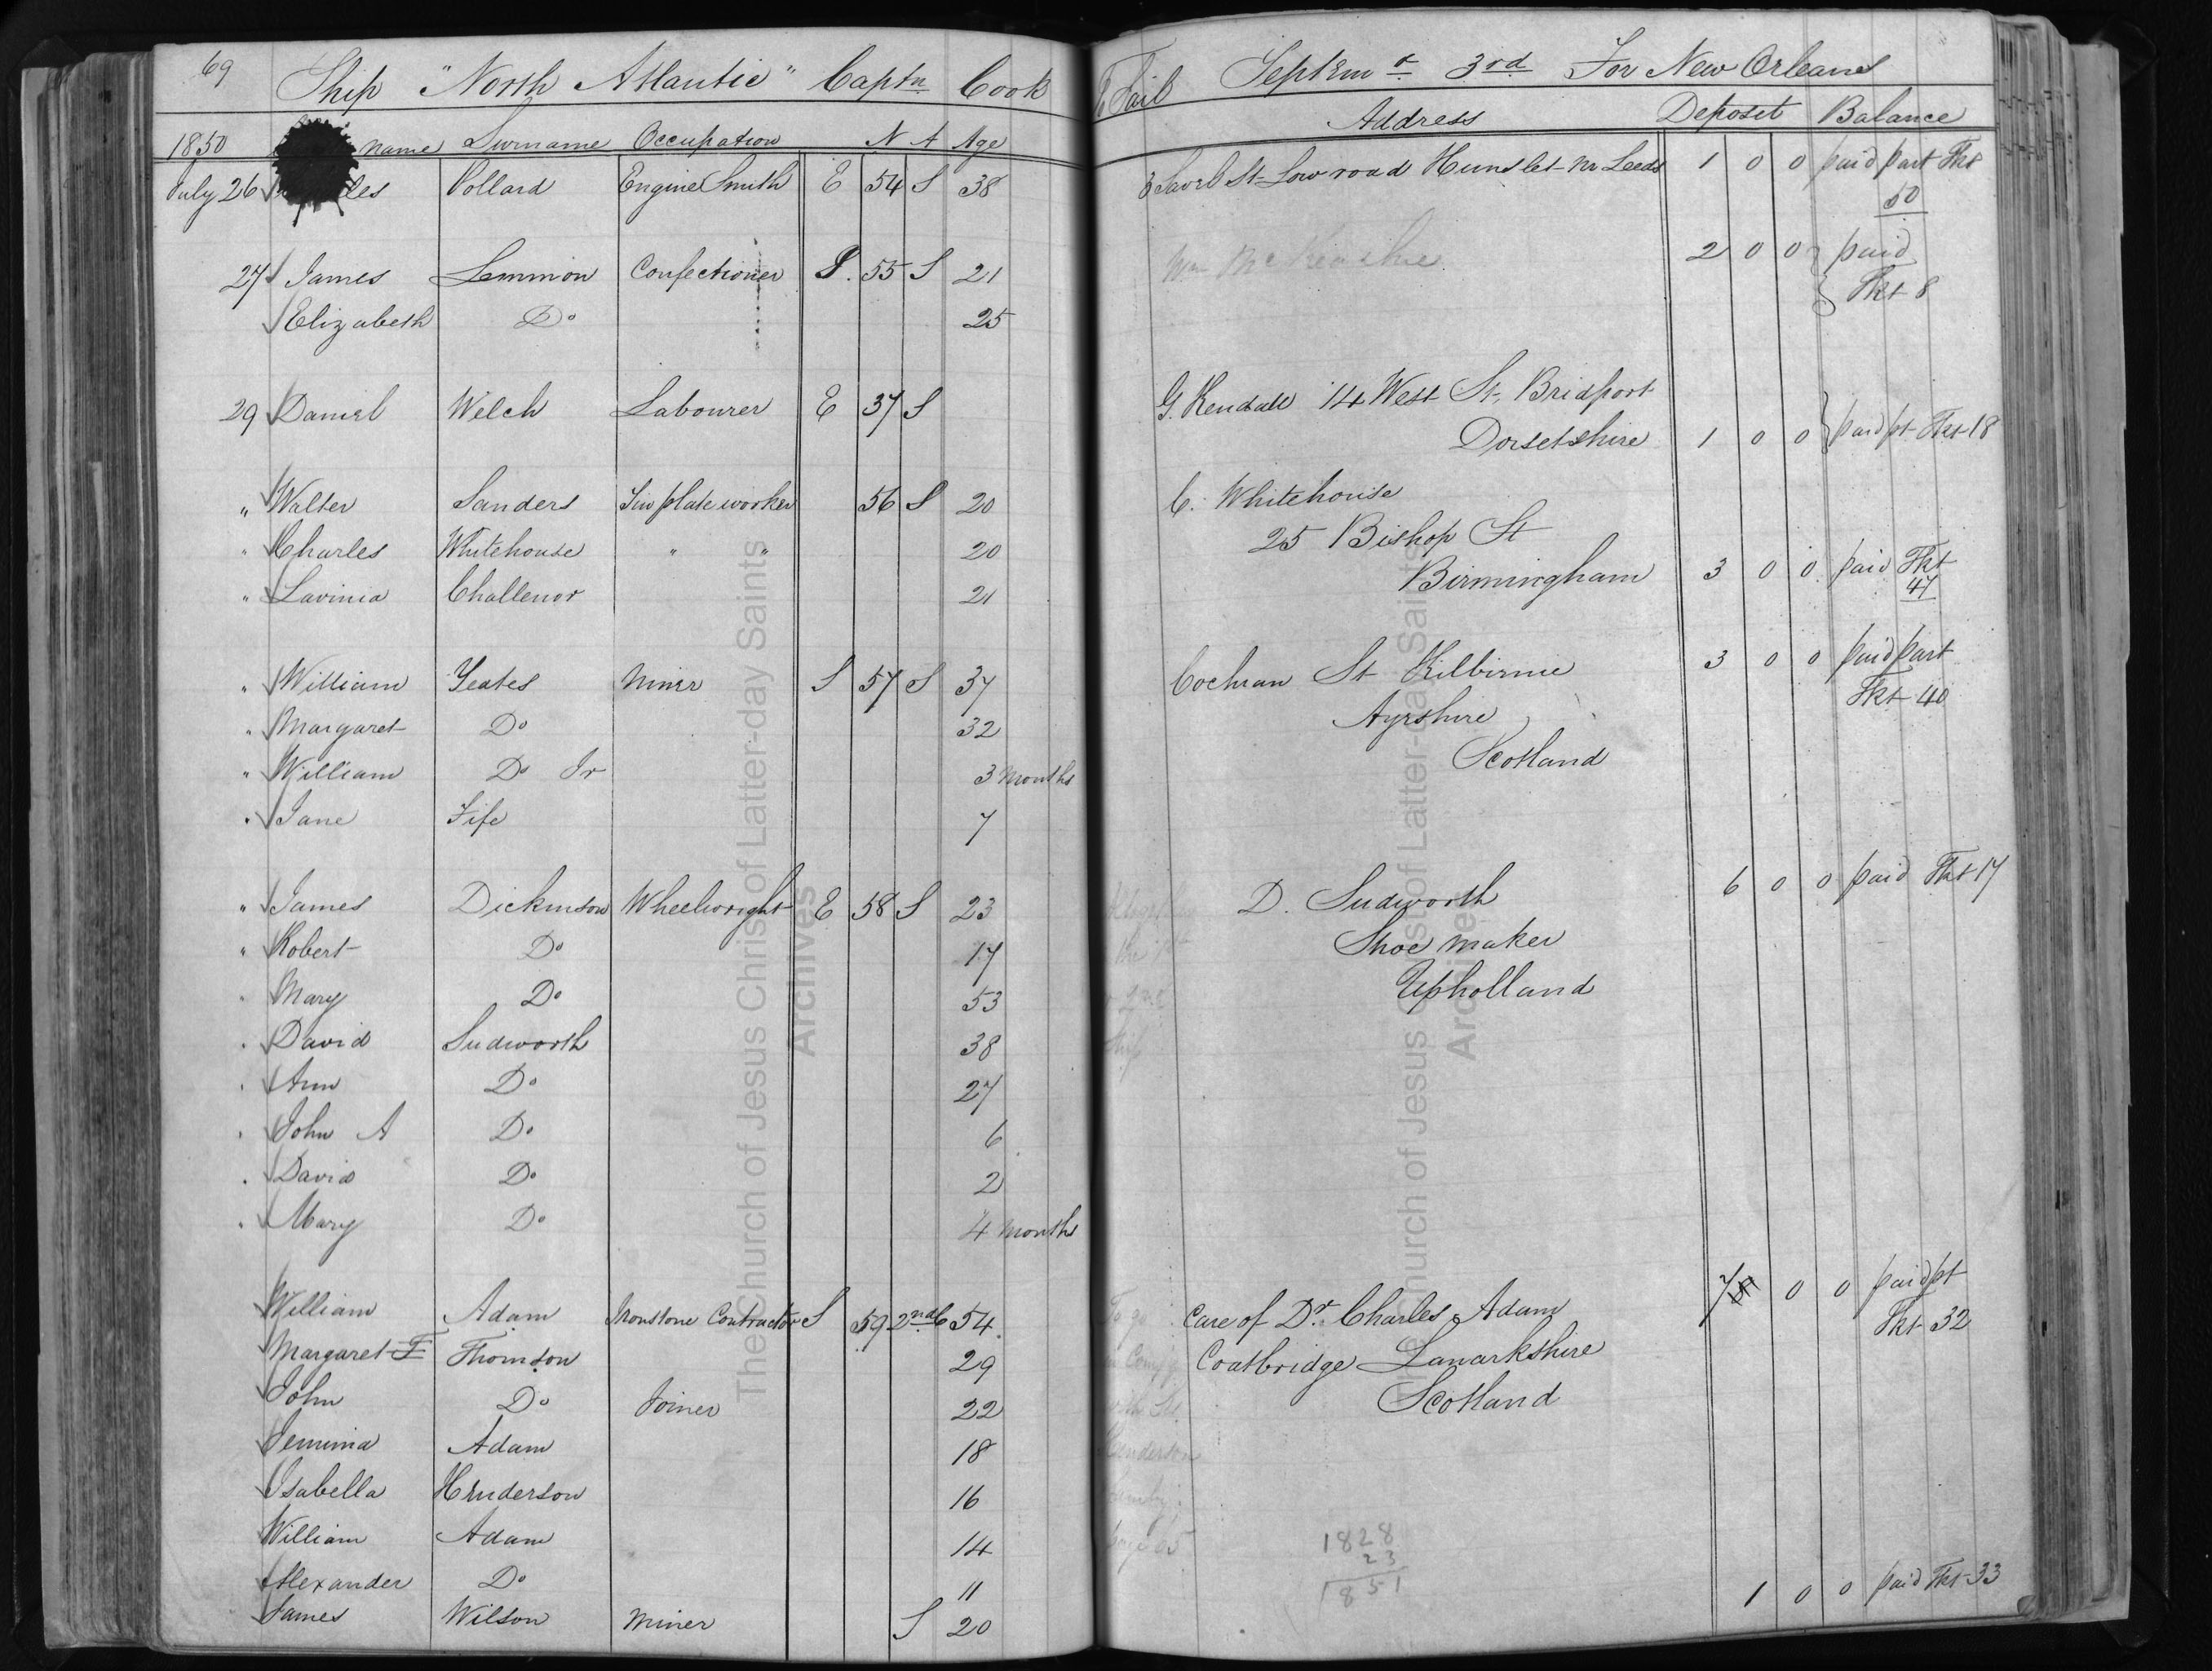 69 Ship "North Atlantic" Captn Cook To Sail Septemr 3rd For New Orleans
1850 name Surname Occupation N A Age Address Deposet Balance
July 26 les Pollard Engine Smith E 54 S 38 St Low road Hunslet nr Leeds 1 0 0 paid part Tkt
50
27 James Lemmon Confectioner 55 S 21 2 0 0 paid
Elizabeth Do 25 Tkt 8
29 Daniel Welch Labourer E 37 S G. Kendall 14 West St, Bridport
Dorsetshire 1 0 0 paid pt Tkt 18
" Walter Sanders Tin plate worker 56 S 20 C. Whitehouse
" Charles Whitehouse " " 20 25 Bishop St
" Lavinia Challenor 21 Birmingham 3 0 0 paid Tkt
47
" William Yeates Miner S 57 S 37 Cochran St Kilbirnie 3 0 0 paid part
" Margaret Do 32 Ayrshire Tkt 40
" William Do Jr 3 Months Scotland
" Jane Fife 7
" James Dickinson Wheelwright E 58 S 23 D. Sudworth 6 0 0 paid Tkt 17
" Robert Do 17 Shoe maker
" Mary Do 53 Upholland
" David Sudworth 38
" Ann Do 27
" John A Do 6
" David Do 2
" Mary Do 4 months
William Adam Ironstone Contractor S 59 2nd C 54 Care of Dr. Charles Adam 7 0 0 paid pt
Margaret F Thomson 29 Coatbridge Lanarkshire Tkt 32
John Do Joiner 22 Scotland
Jemima Adam 18 Henderson
Isabella Henderson 16 family
William Adam 14 page 65 1828
23
Alexander Do 11 1851
James Wilson Miner S 20 1 0 0 paid Tkt 33
The Church of Jesus Christ of Latter-day Saints
Archives
The Church of Jesus Christ of Latter-day Saints
Archives